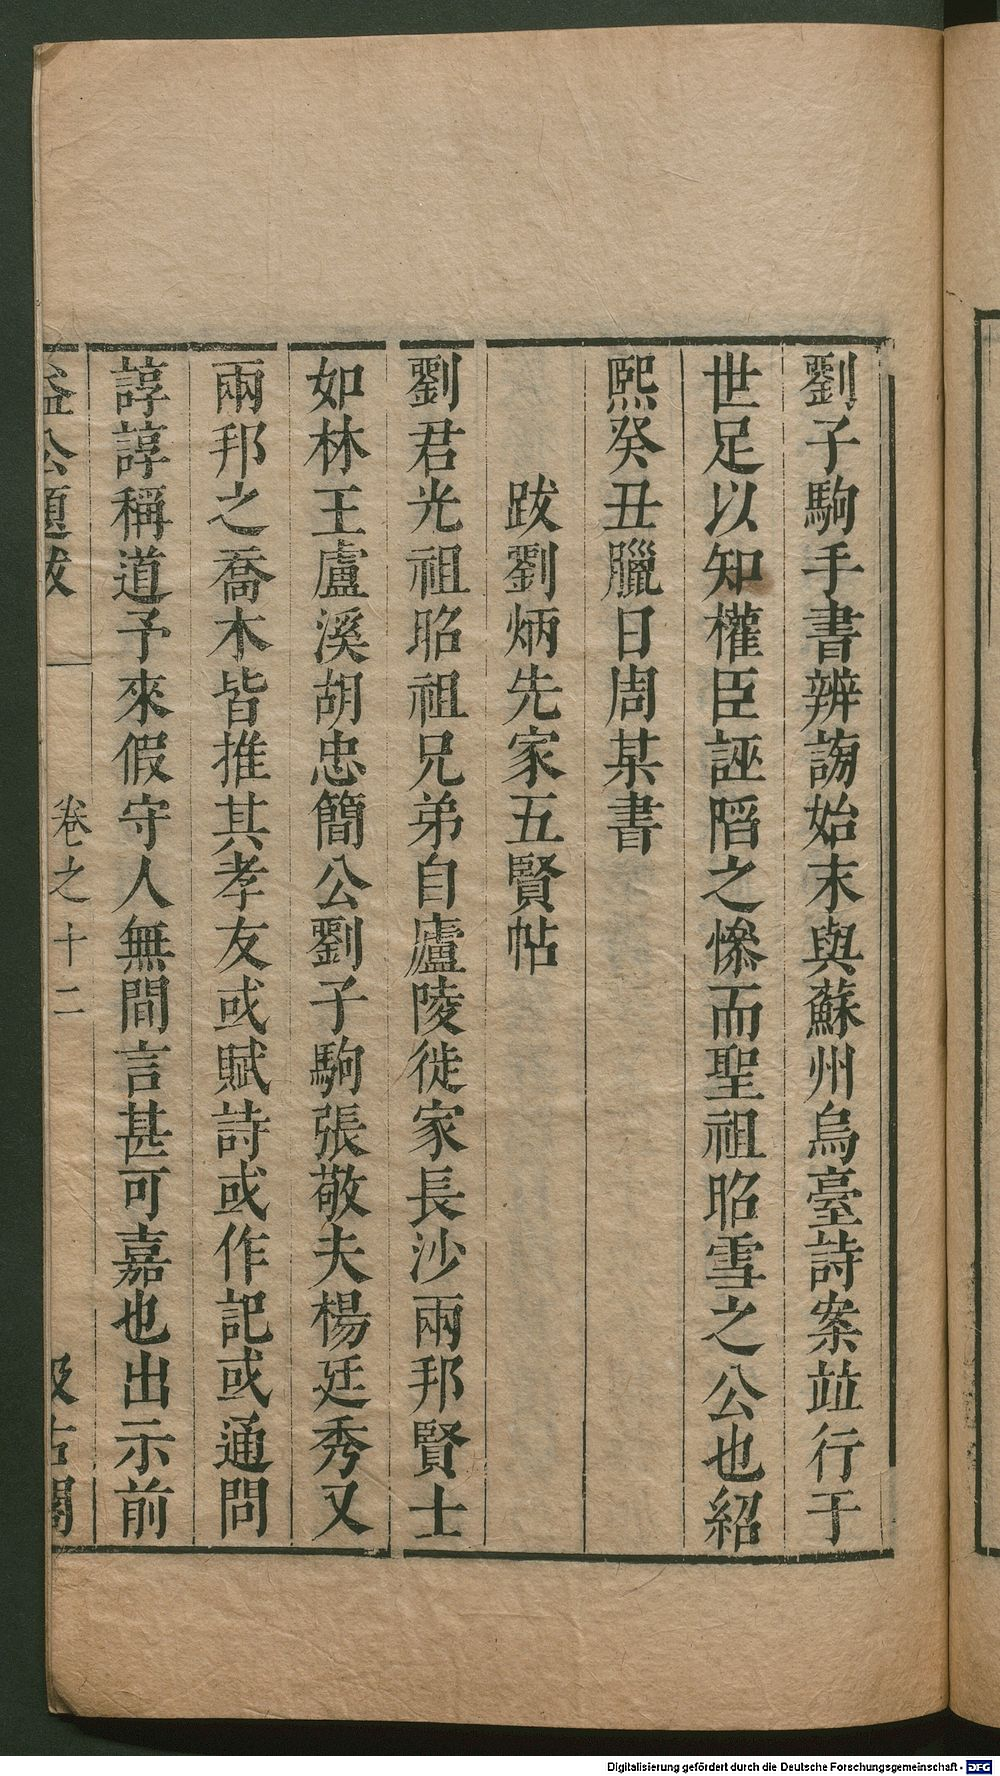 劉子駒手書辨謗始末與蘇州烏臺詩案並行于
世足以知權臣誣陷之慘而聖祖昭雪之公也紹
熙癸丑臘日周某書
跋劉炳先家五賢帖
劉君光祖昭祖兄弟自廬陵徙家長沙兩邦賢士
如林王盧溪胡忠簡公劉子駒張敬夫楊廷秀又
兩邦之喬木皆推其孝友或賦詩或作記或通問
諄諄稱道予來假守人無間言甚可嘉也出示前
益公題跋 卷之十二 汲古閣
Digitalisierung gefördert durch die Deutsche Forschungsgemeinschaft - DFG